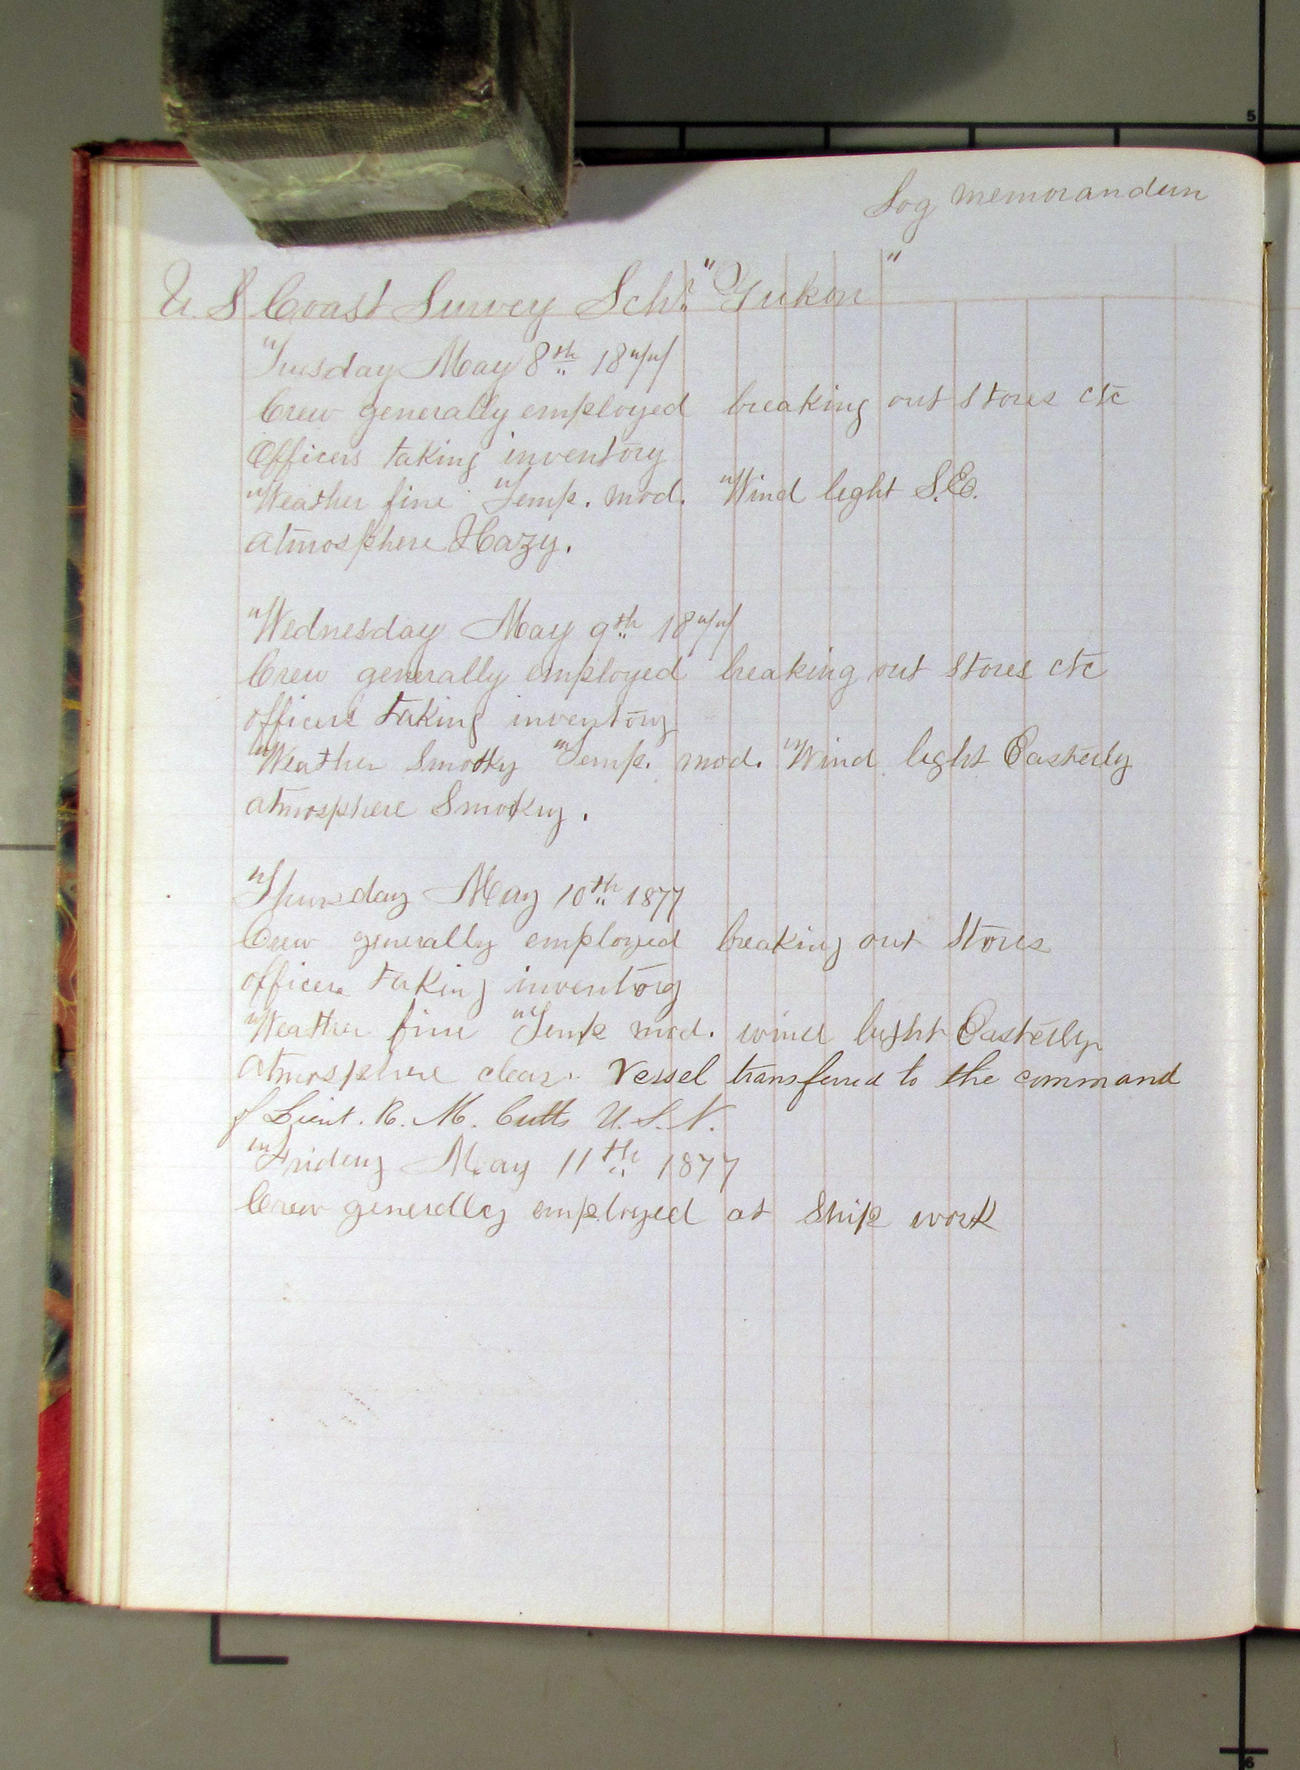 Log memorandum
U. S Coast Survey Schr. "Yukon"
Tuesday May 8th 1877
Crew generally employed breaking out Stores etc
Officers taking inventory
Weather fine Temp. mod. Wind light S.E.
Atmosphere Hazy.
Wednesday May 9th 1877
Crew generally employed breaking out Stores etc
officers taking inventory
Weather Smoky Temp. mod. Wind light Easterly
atmosphere Smoky.
Thursday May 10th 1877
Crew generally employed breaking out Stores
officers taking inventory
Weather fine Temp mod. wind light Easterly
Atmosphere clear. Vessel transferred to the command
of Lieut. R. M. Cutts U.S.N.
Friday May 11th 1877
Crew generally employed at Ship work
5
6